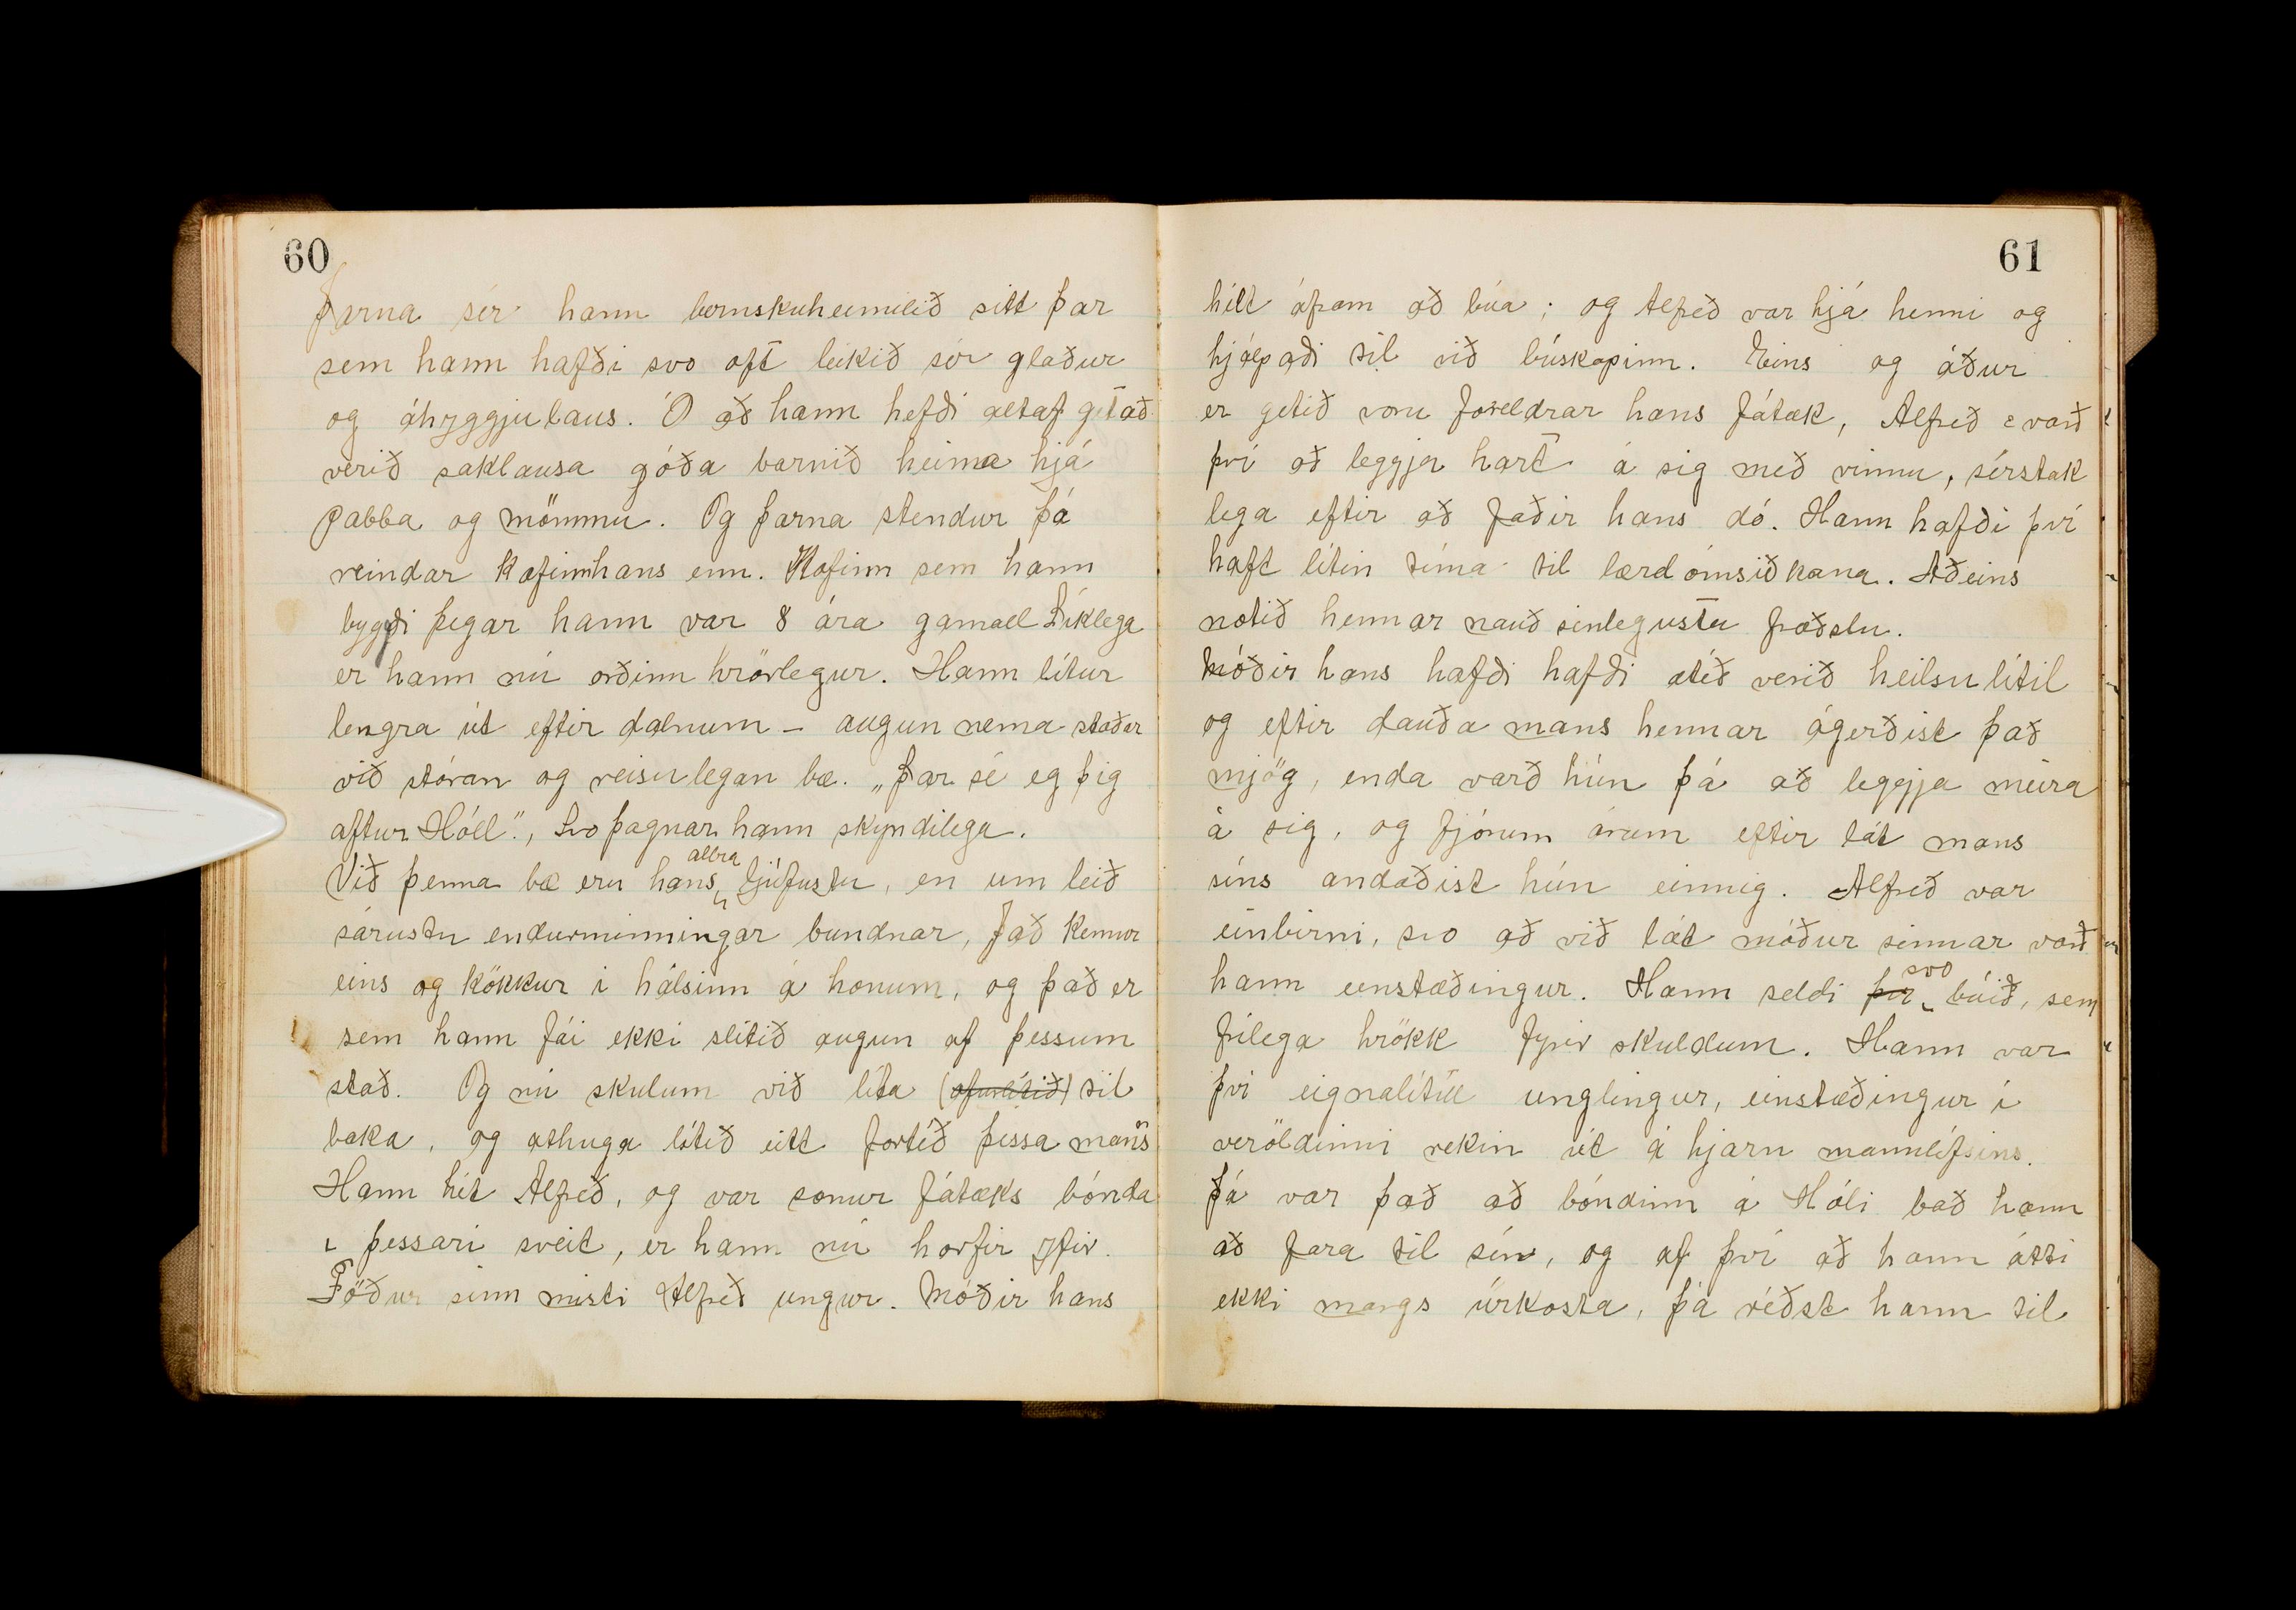 60
Þarna sér hann bernskuheimilið sitt þar
sem hann hafði svo oft leikið sér glaður
og áhyggjulaus. Ó að hann hefði altaf getað
verið saklausa góða barnið heima hjá
pabba og mömmu. Og þarna stendur þá
reindar Kofinnhans enn. Kofinn sem hann
bygði þegar hann var 8 ára gamall Líklega
er hann nú orðinn hrörlegur. Hann lítur
lengra út eftir dalnum – augun nema staðar
við stóran og reisulegan bæ. „Þar sé eg þig
aftur Hóll“, Svo þagnar hann skyndilega.
Við þenna bæ eru hans allra ljúfustu, en um leið
sárustu endurminningar bundnar, Það kemur
eins og kökkur í hálsinn á honum, og það er
sem hann fái ekki slitið augun af þessum
stað. Og nú skulum við líta (ofurlítið) til
baka, og athuga lítið eitt fortíð þessa mans
Hann hét Alfreð, og var sonur fátæks bónda
í þessari sveit, er hann nú horfir yfir.
Föður sinn misti Alfreð ungur. Móðir hans
61
hélt áfram að búa; og Alfreð var hjá henni og
hjálpaði til við búskapinn. Eins og áður
er getið voru foreldrar hans fátæk, Alfreð varð
því að leggja hart á sig með vinnu, sérstak
lega eftir að faðir hans dó. Hann hafði því
haft lítin tíma til lærdómsiðkana. Aðeins
notið hennar nauðsinlegustu fræðslu.
Móðir hans hafði hafði ætíð verið heilsulítil
og eftir dauða mans hennar ágerðist það
mjög, enda varð hún þá að leggja meira
á sig, og fjórum árum eftir lát mans
síns andaðist hún einnig. Alfreð var
einbirni, svo að við lát móður sinnar varð
hann einstæðingur. Hann seldi því svo búið, sem
frílega hrökk fyrir skuldum. Hann var
því eignalítill unglingur, einstæðingur í
veröldinni rekin út á hjarn mannlífsins.
Þá var það að bóndinn á Hóli bað hann
að fara til sín, og af því að hann átti
ekki margs úrkosta, þá réðst hann til